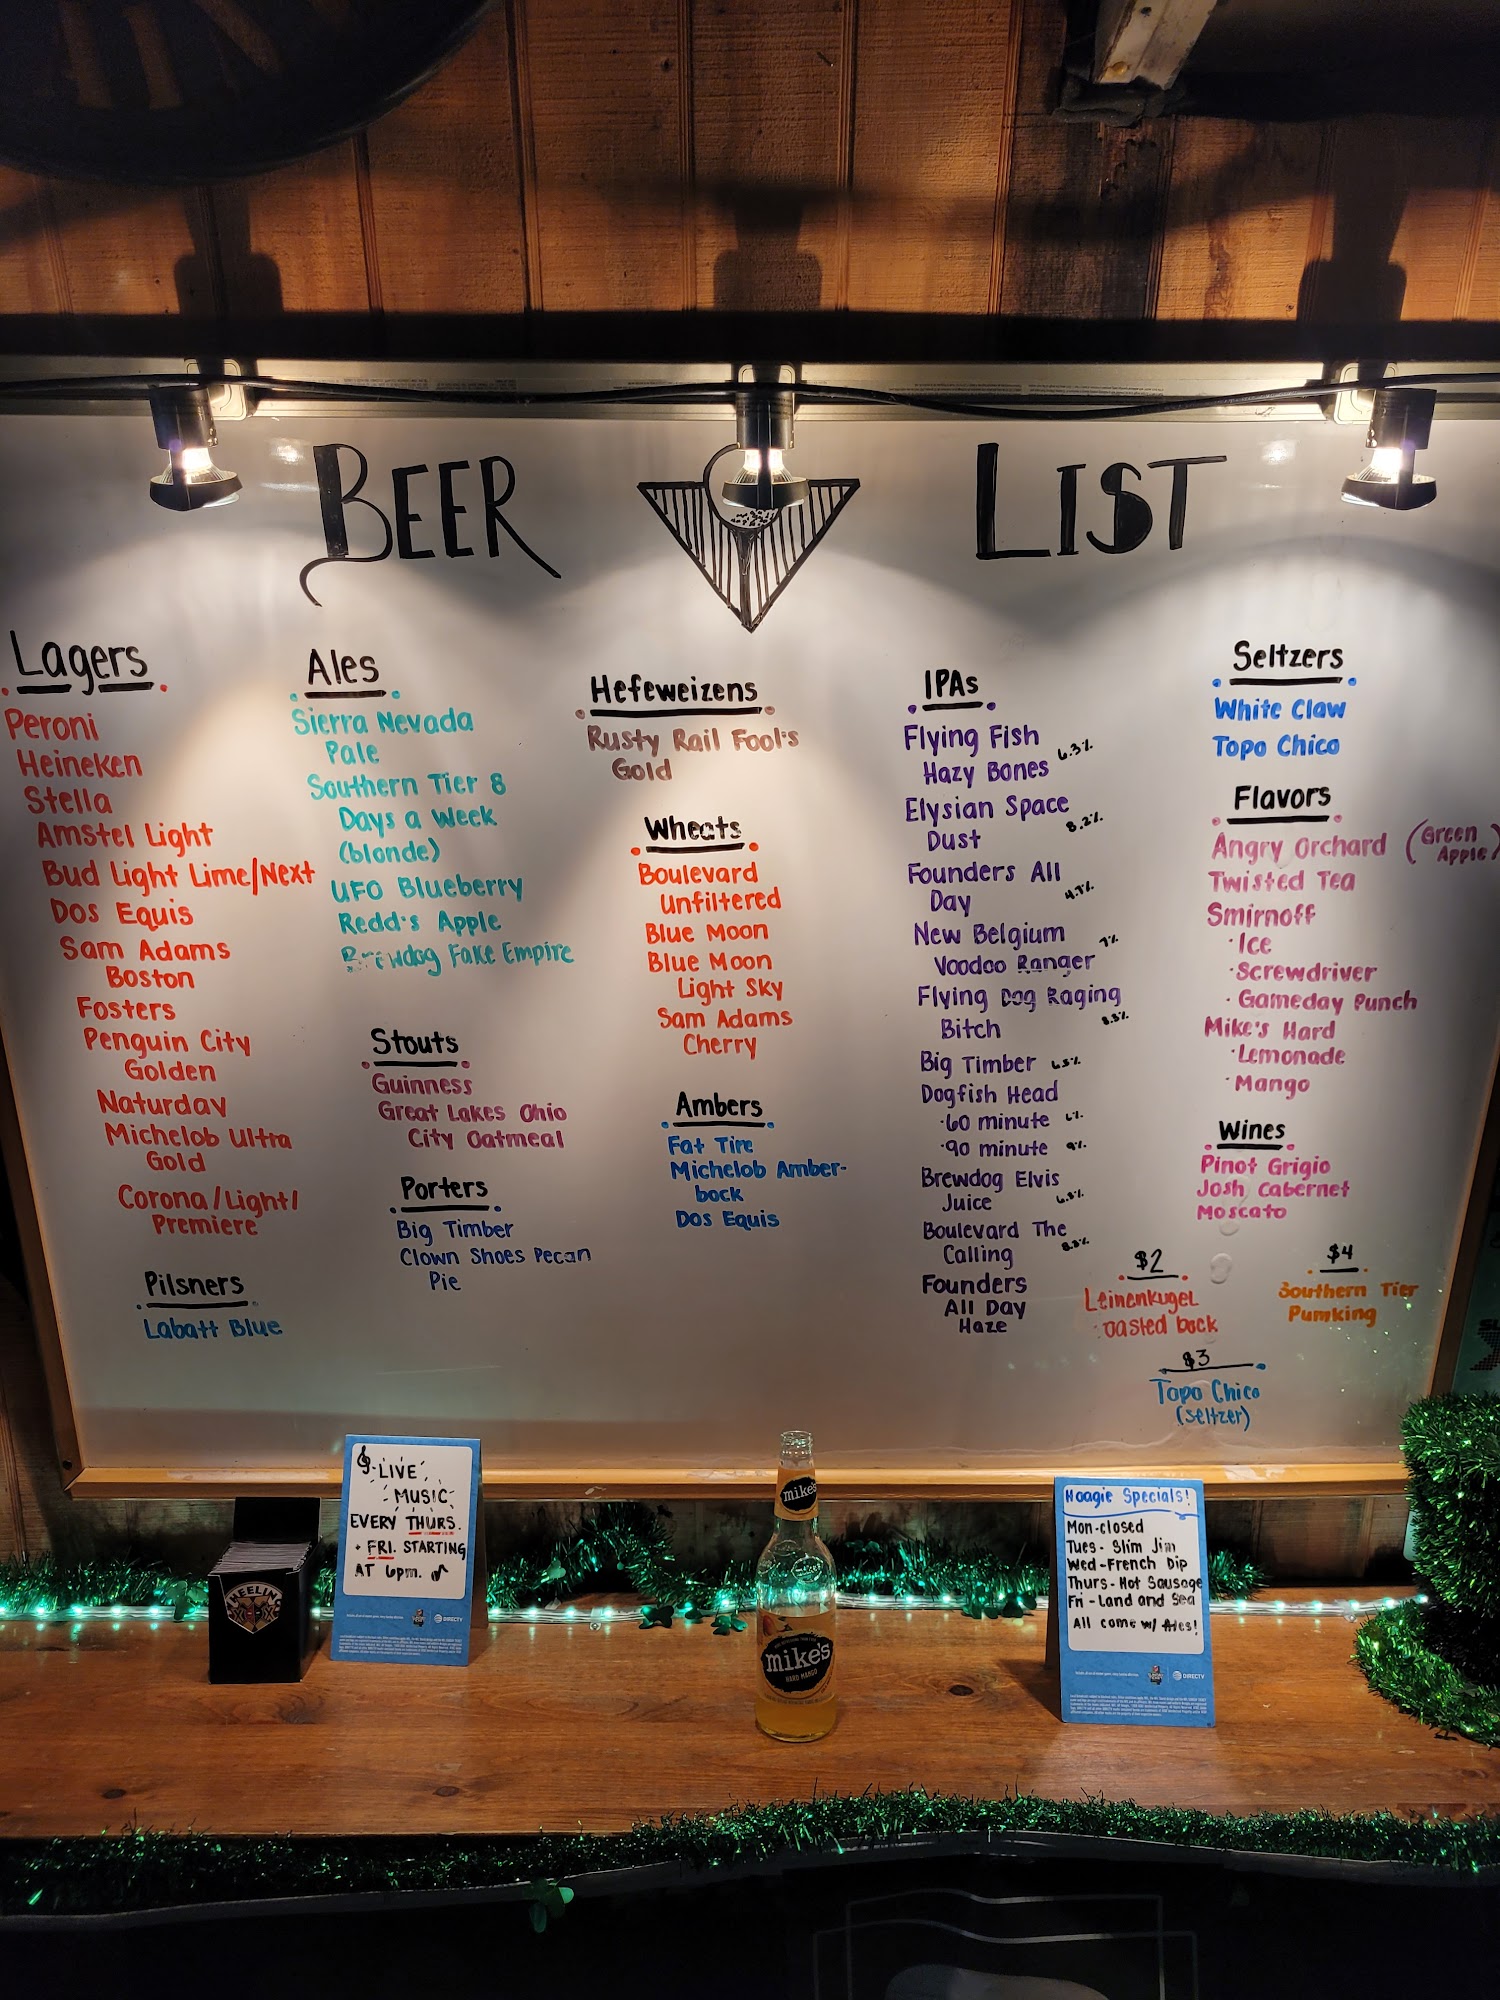 BEER LIST
Lagers
Peroni
Heineken
Stella
Amstel Light
Bud Light Lime/Next
Dos Equis
Sam Adams
Boston
Fosters
Penguin City
Golden
Naturday
Michelob Ultra
Gold
Corona/Light/
Premiere
Pilsners
Labatt Blue
Ales
Sierra Nevada
Pale
Southern Tier 8
Days a Week
(blonde)
UFO Blueberry
Redd's Apple
Brewdog Fake Empire
Stouts
Guinness
Great Lakes Ohio
City Oatmeal
Porters
Big Timber
Clown Shoes Pecan
Pie
Hefeweizens
Rusty Rail Fool's
Gold
Wheats
Boulevard
Unfiltered
Blue Moon
Blue Moon
Light Sky
Sam Adams
Cherry
Ambers
Fat Tire
Michelob Amber-
bock
Dos Equis
IPAs
Flying Fish
Hazy Bones 6.3%
Elysian Space
Dust 8.2%
Founders All
Day 4.7%
New Belgium
Voodoo Ranger 7%
Flying Dog Raging
Bitch 8.3%
Big Timber 6.5%
Dogfish Head
·60 minute 6%
·90 minute 9%
Brewdog Elvis
Juice 6.5%
Boulevard The
Calling 8.5%
Founders
All Day
Haze
Seltzers
White Claw
Topo Chico
Flavors
Angry Orchard (Green
Apple)
Twisted Tea
Smirnoff
·Ice
·Screwdriver
·Gameday Punch
Mike's Hard
·Lemonade
·Mango
Wines
Pinot Grigio
Josh Cabernet
Moscato
$2
Leinenkugel
toasted bock
$4
Southern Tier
Pumking
$3
Topo Chico
(seltzer)
LIVE
MUSIC
EVERY THURS.
+ FRI. STARTING
AT 6pm.
DIRECTV
mike's
mike's
HARD MANGO
Hoagie Specials!
Mon-closed
Tues- Slim Jim
Wed-French Dip
Thurs-Hot Sausage
Fri-Land and Sea
All come w/ fries!
DIRECTV